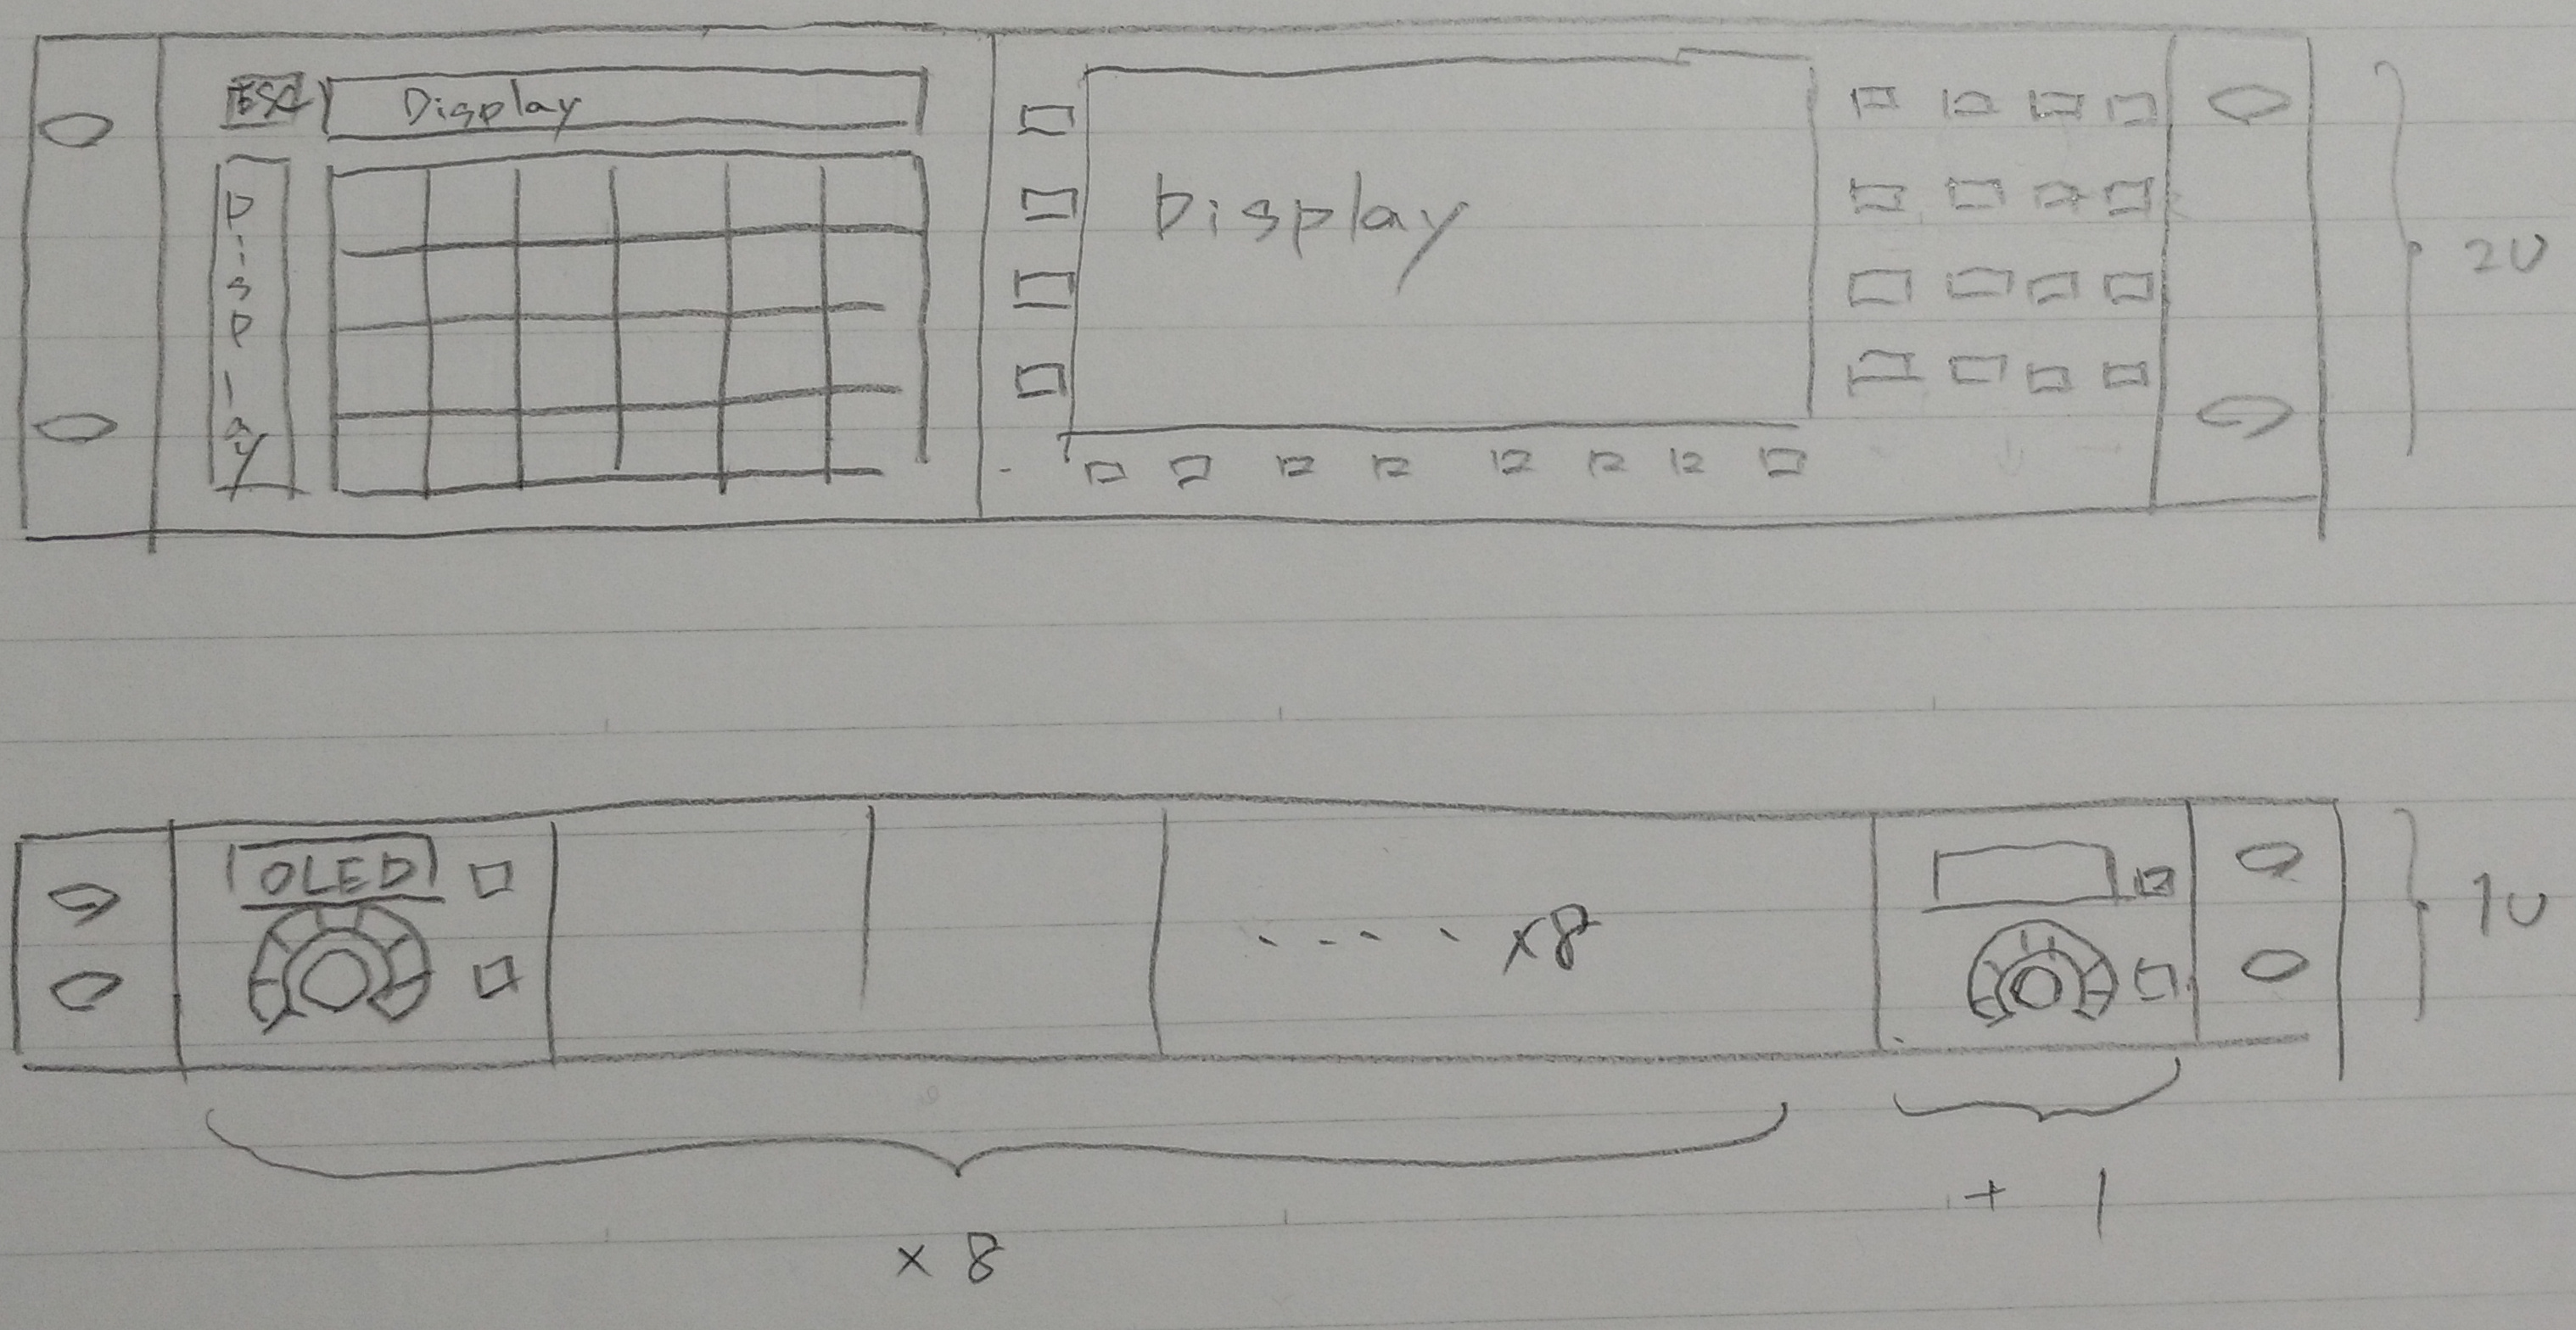 ESC
Display
Display
Display
2U
OLED
.... x8
1U
x 8
+ 1